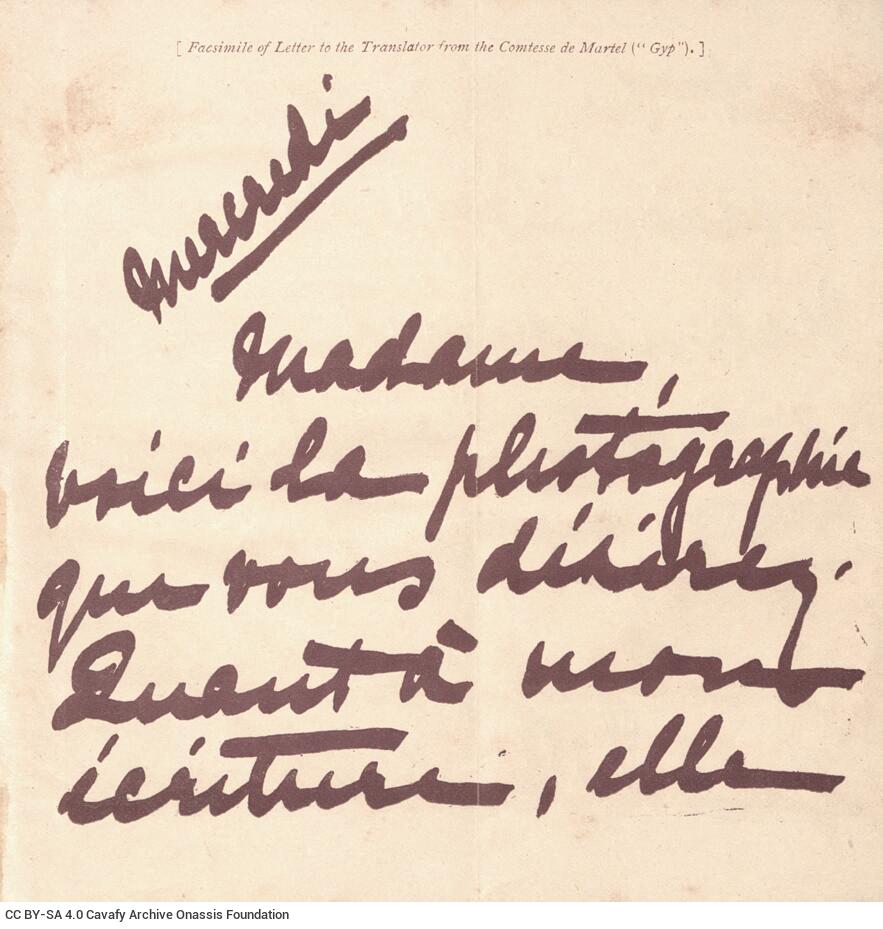 [ Facsimile of Letter to the Translator from the Comtesse de Martel (“ Gyp”). ]
Mercredi
Madame,
voici la photographie
que vous désirez.
Quant à mon
écriture, elle
CC BY-SA 4.0 Cavafy Archive Onassis Foundation